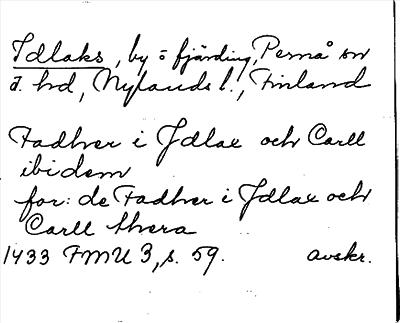 Idlaks, by o fjärding, Pernå sn
ö. hd, Nylands l., Finland
Fadher i Jdlax och Carll
ibidem
for: de Fadher i Jdlax och
Carll thera
1433 FMU 3, s. 59. avskr.